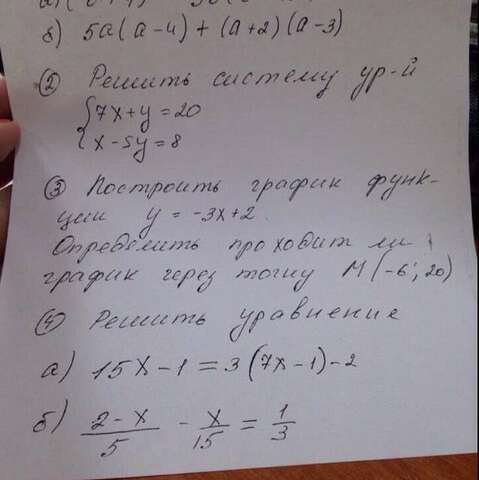 б) 5а(а-4)+(а+2)(а-3)
② Решить систему ур-й
{7x+y=20
x-5y=8
③ Построить график функ-
ции y=-3x+2.
Определить проходит ли
график через точку М(-6; 20)
④ Решить уравнение
а) 15x-1=3(7x-1)-2
б) (2-x)/5 - x/15 = 1/3